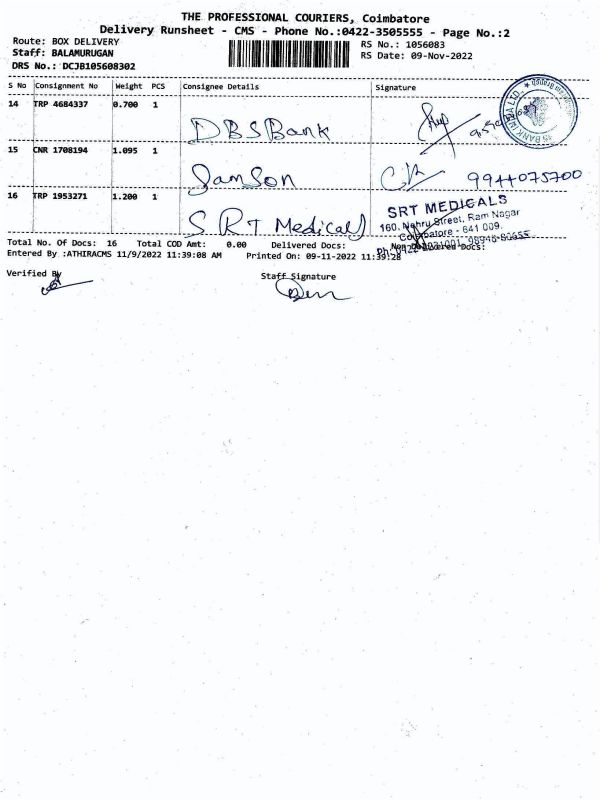 THE PROFESSIONAL COURIERS, Coimbatore
Delivery Runsheet - CMS - Phone No.:0422-3505555 - Page No.:2
Route: BOX DELIVERY
Staff: BALAMURUGAN
DRS No.: DCJB105608302
RS No.: 1056083
RS Date: 09-Nov-2022
S No Consignment No Weight PCS Consignee Details Signature
14 TRP 4684337 0.700 1 DBS Bank
15 CNR 1708194 1.095 1 Samson 9944075700
16 TRP 1953271 1.200 1 S R T Medicals
SRT MEDICALS
160, Nehru Street, Ram Nagar
Coimbatore - 641 009.
Total No. Of Docs: 16 Total COD Amt: 0.00 Delivered Docs: Non Delivered Docs:
Entered By :ATHIRACMS 11/9/2022 11:39:08 AM Printed On: 09-11-2022 11:39:28
Verified By
Staff Signature